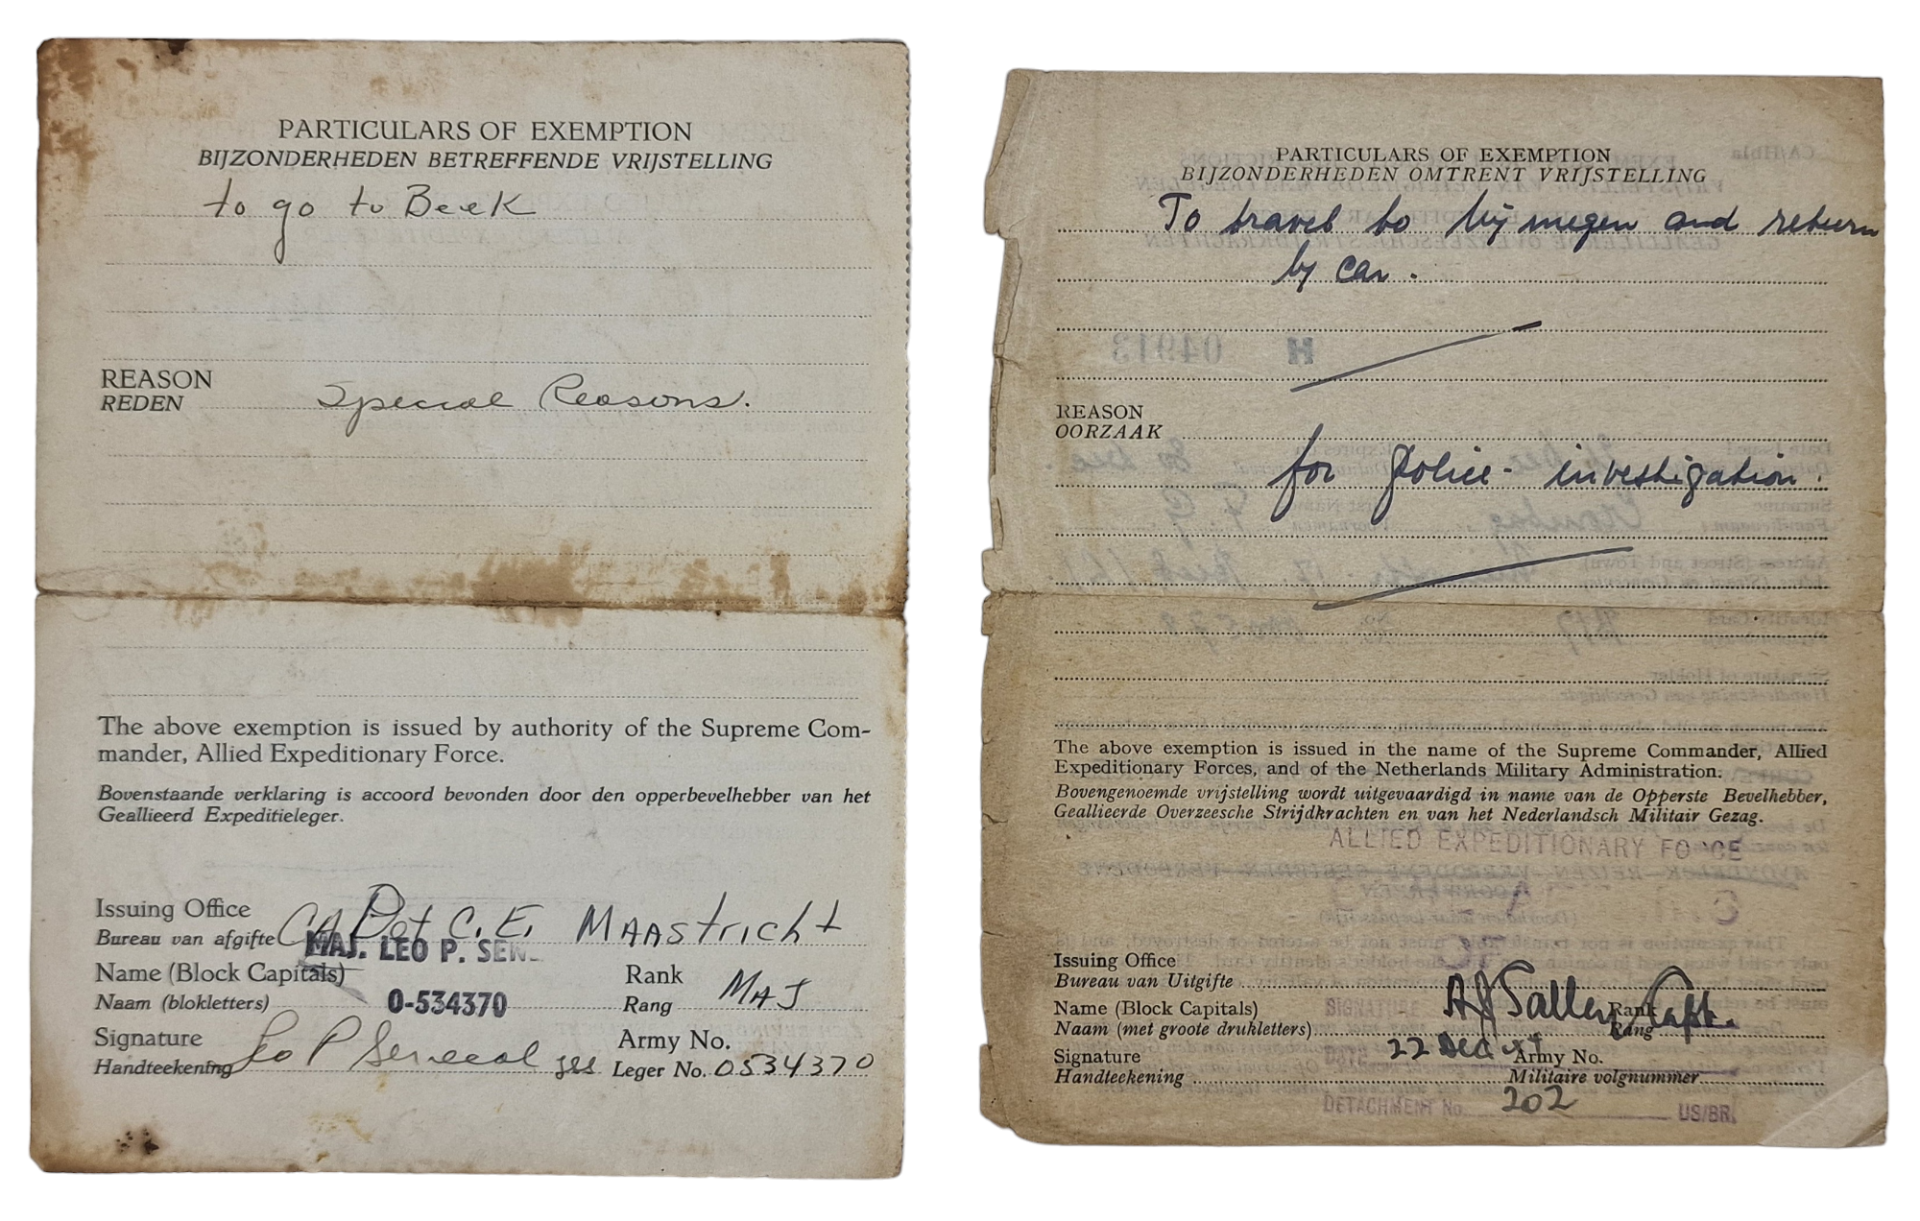 PARTICULARS OF EXEMPTION
BIJZONDERHEDEN BETREFFENDE VRIJSTELLING
to go to Beek
REASON
REDEN Special Reasons.
The above exemption is issued by authority of the Supreme Com-
mander, Allied Expeditionary Force.
Bovenstaande verklaring is accoord bevonden door den opperbevelhebber van het
Geallieerd Expeditieleger.
Issuing Office
Bureau van afgifte CA Det C.E. MAAstricht
MAJ. LEO P. SEN
Name (Block Capitals) Rank
Naam (blokletters) O-534370 Rang MAJ
Signature Army No.
Handteekening Leo P Senecal Leger No. 0534370
PARTICULARS OF EXEMPTION
BIJZONDERHEDEN OMTRENT VRIJSTELLING
To travel to Nijmegen and return
by car.
H 04913
REASON
OORZAAK
for police-investigation.
The above exemption is issued in the name of the Supreme Commander, Allied
Expeditionary Forces, and of the Netherlands Military Administration.
Bovengenoemde vrijstelling wordt uitgevaardigd in name van de Opperste Bevelhebber,
Geallieerde Overzeesche Strijdkrachten en van het Nederlandsch Militair Gezag.
ALLIED EXPEDITIONARY FORCE
Issuing Office
Bureau van Uitgifte
Name (Block Capitals) SIGNATURE Rank Capt.
Naam (met groote drukletters) Rang
Signature DATE 22 Dec Army No.
Handteekening Militaire volgnummer
DETACHMENT No. 202 US/BR.